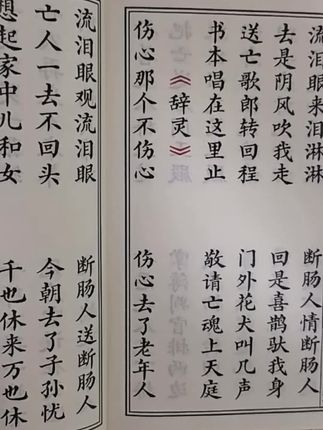 流泪眼来泪淋淋　断肠人情断肠人
去是阴风吹我走　回是喜鹊驮我身
送亡歌郎转回程　门外花犬叫几声
书本唱在这里止　敬请亡魂上天庭
《辞灵》
伤心那个不伤心　伤心去了老年人
流泪眼观流泪眼　断肠人送断肠人
亡人一去不回头　今朝去了子孙忧
想起家中儿和女　千也休来万也休